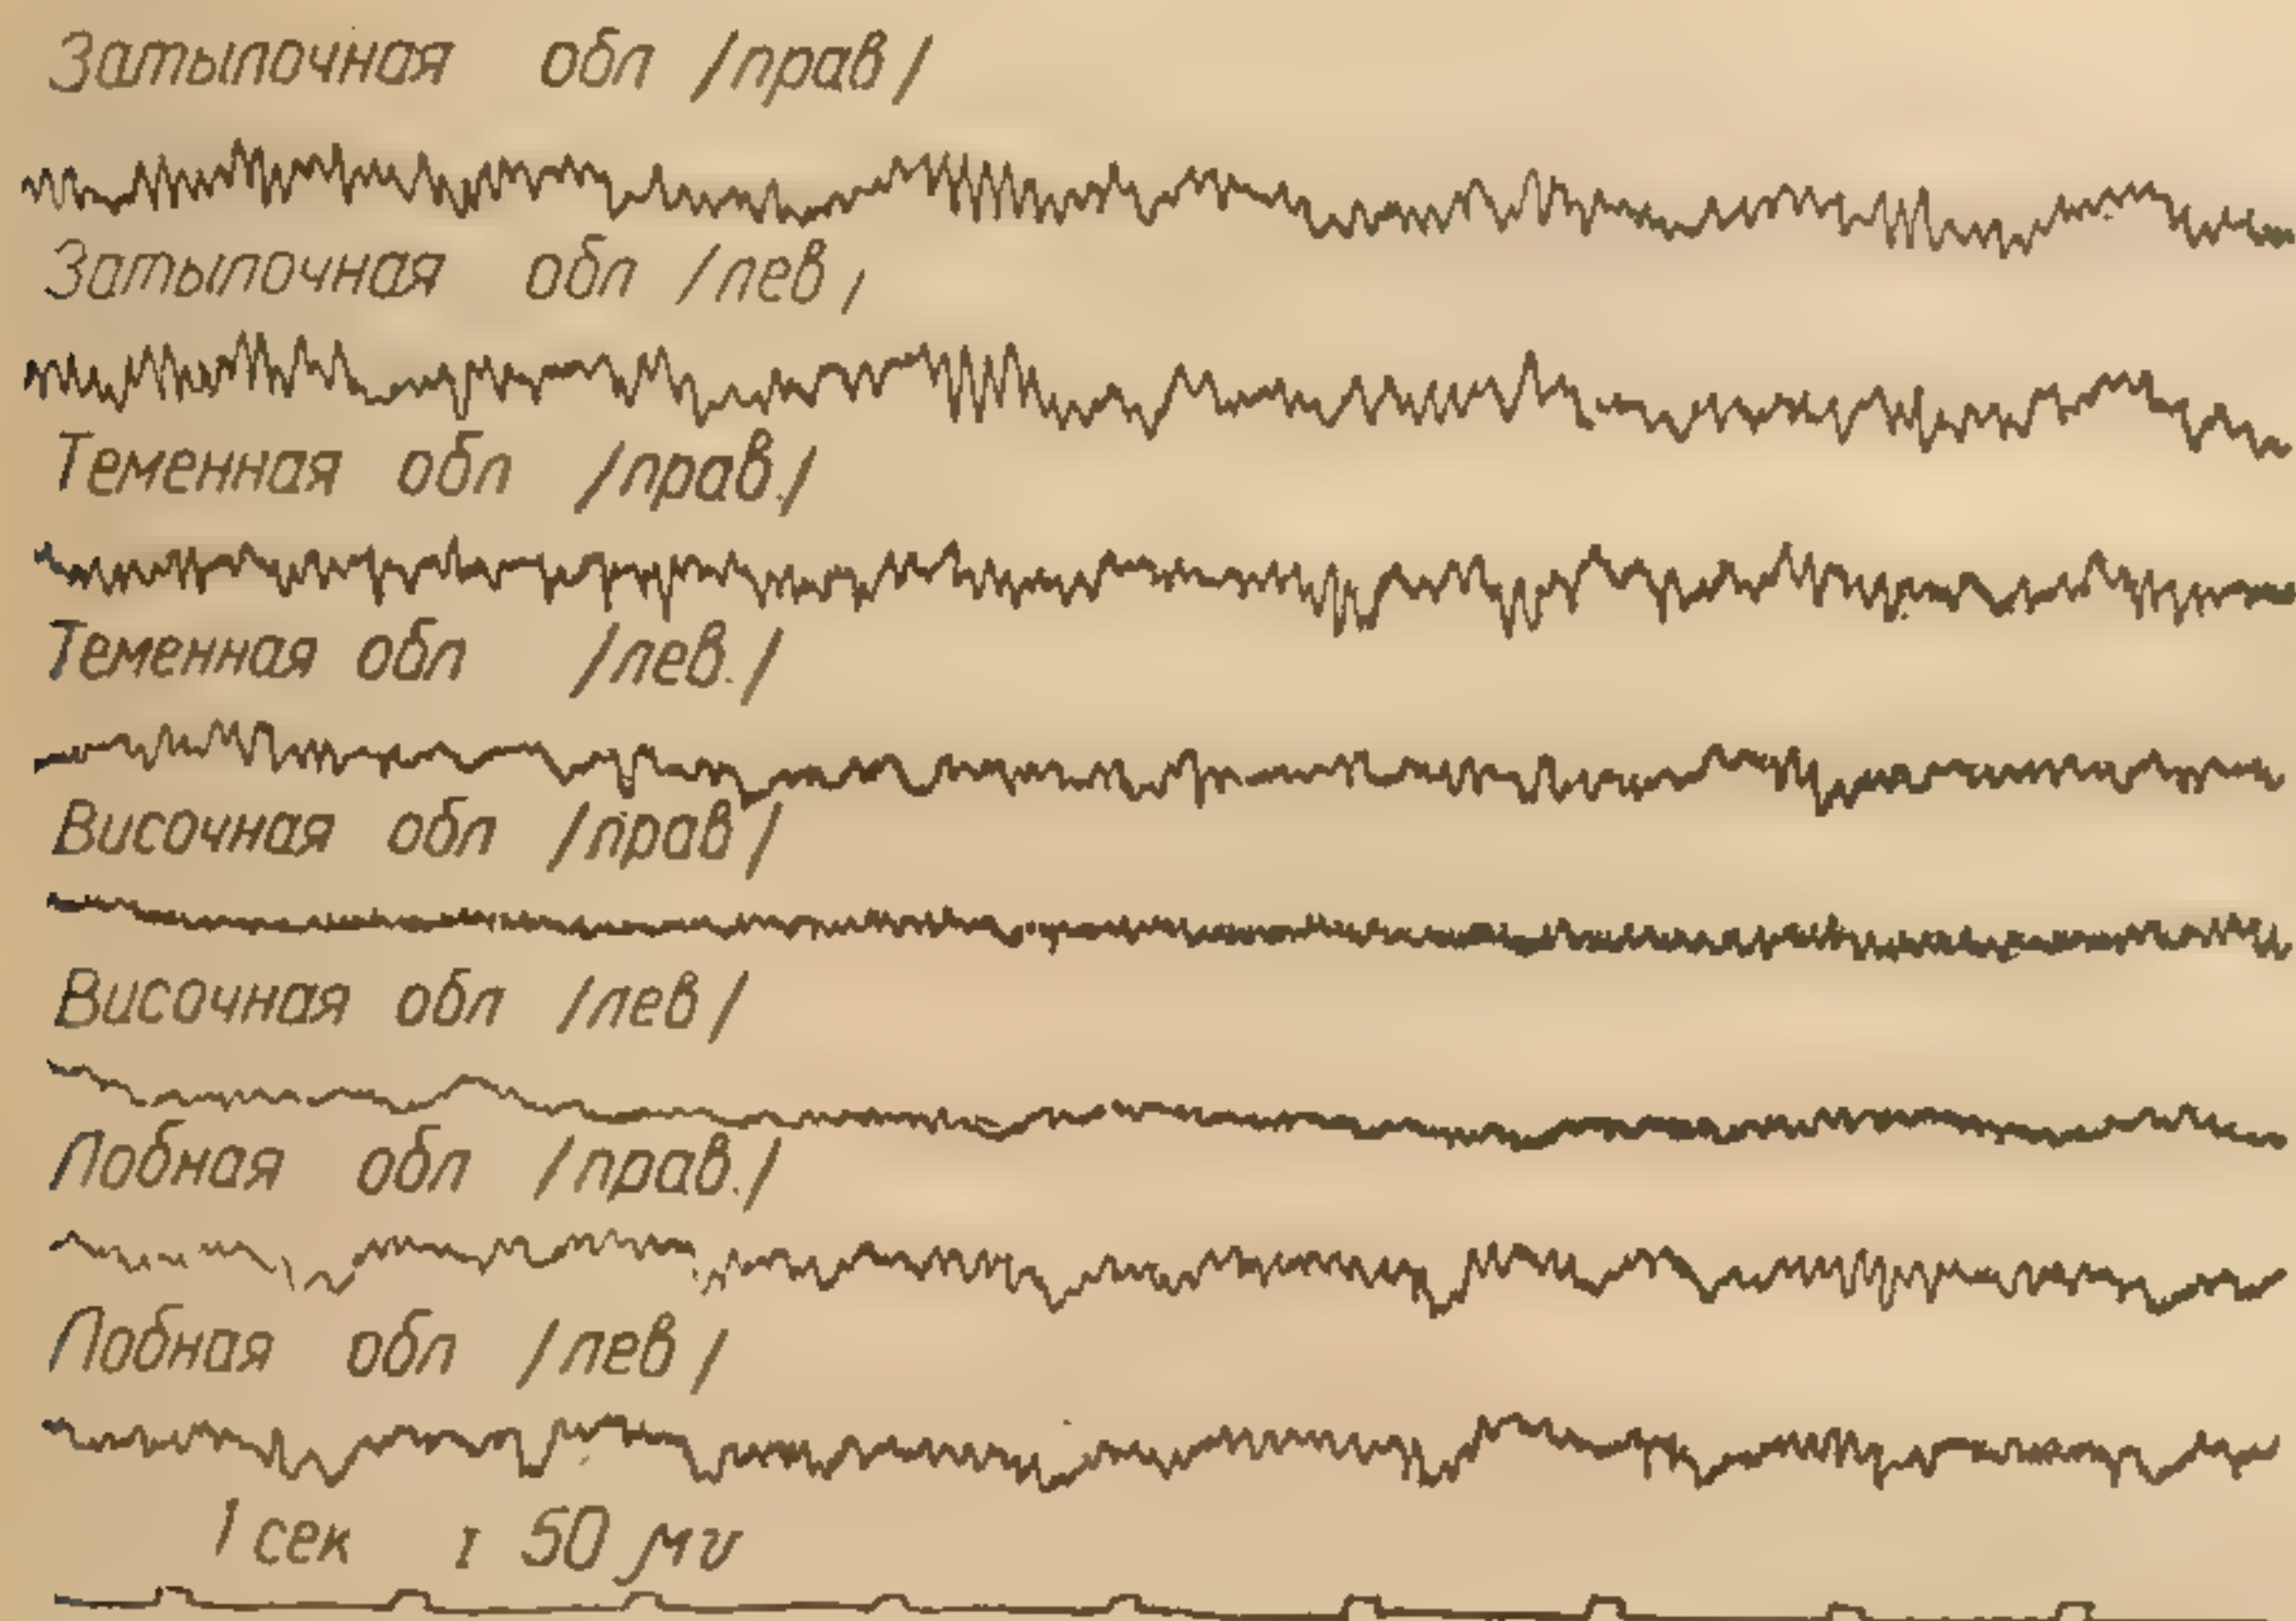 Затылочная обл /прав/
Затылочная обл /лев/
Теменная обл /прав./
Теменная обл /лев./
Височная обл /прав/
Височная обл /лев/
Лобная обл /прав./
Лобная обл /лев/
1 сек I 50 μv